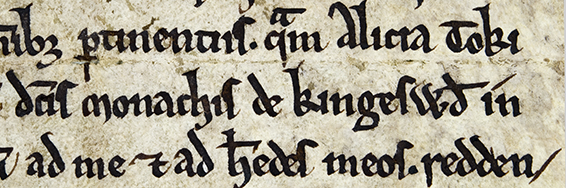 ptinentiis. qam Alicia Toki
dcis monachis de kingeswd in
ad me ⁊ ad hedes meos. redden